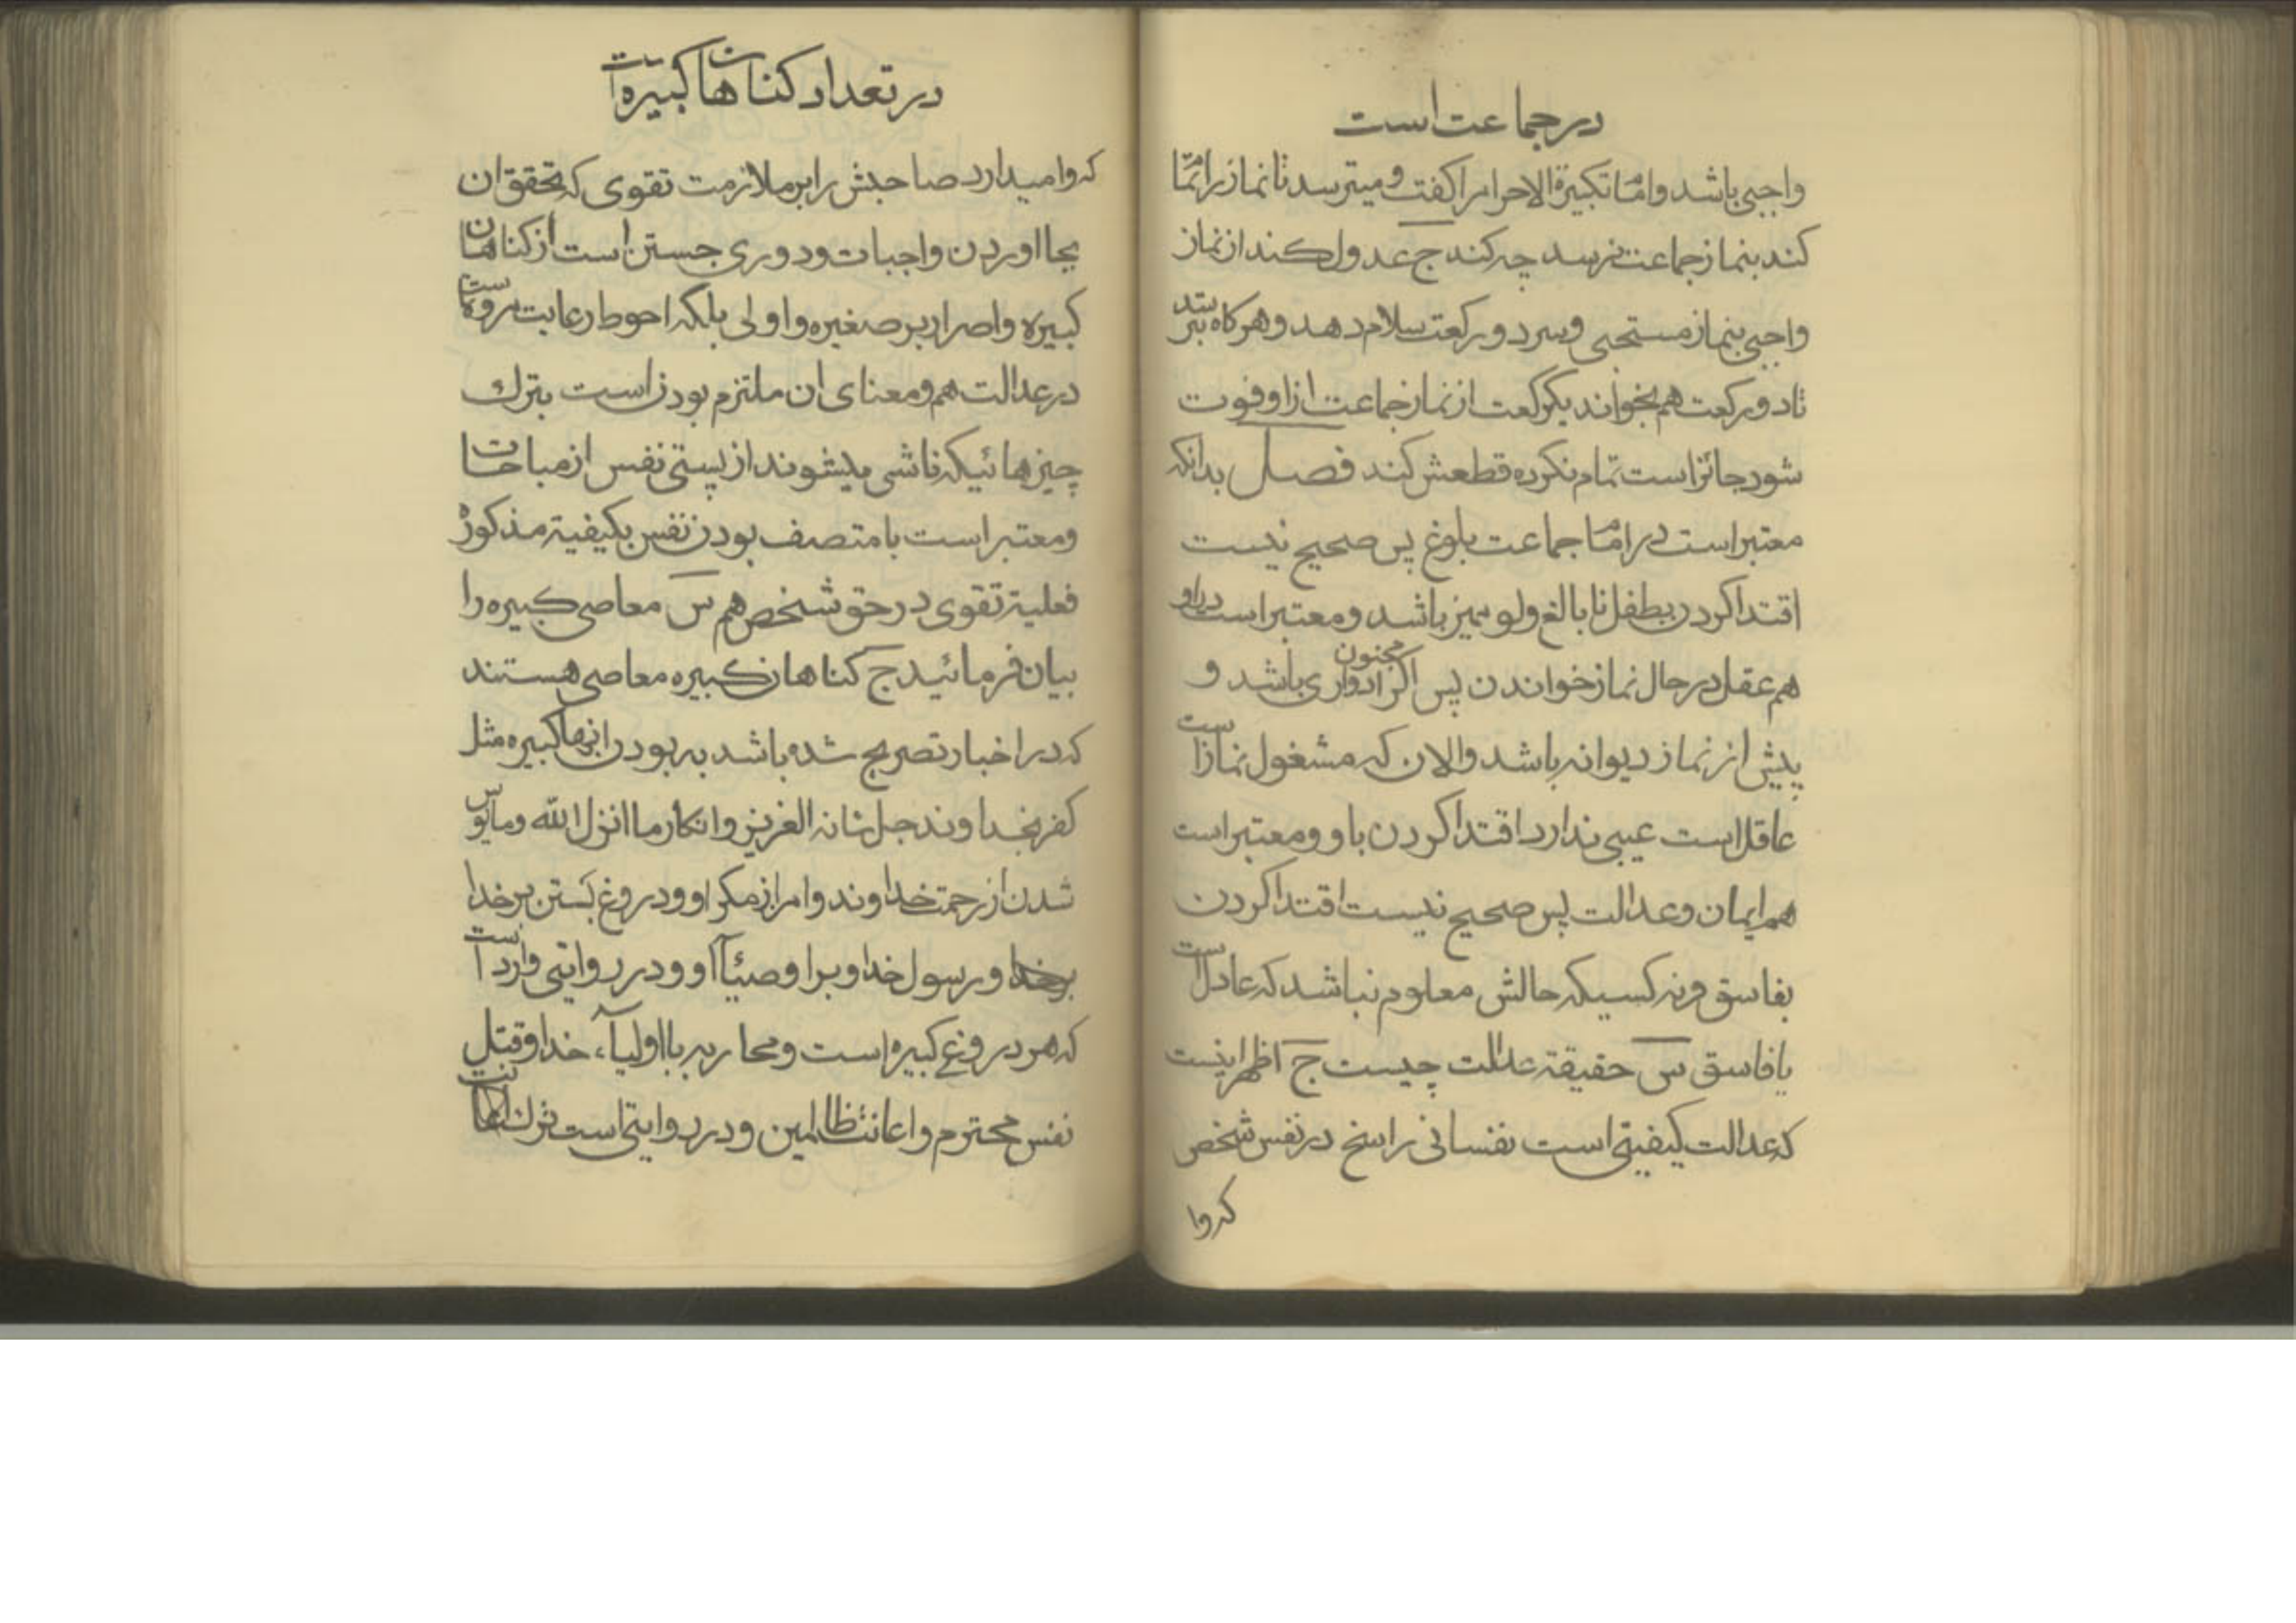 در جماعت است
واجبی باشد و امام تکبیرة الاحرام را کفت و میترسد تا نماز را تمام
کند بنماز جماعت نرسد چه کند ج عدول کند از نماز
واجبی بنماز مستحبی و سر دو رکعت سلام دهد و هر کاه بترسد
تا دو رکعت هم بخواند یکرکعت از نماز جماعت از او فوت
شود جائز است تمام نکرده قطعش کند فصل بدانکه
معتبر است در امام جماعت بلوغ پس صحیح نیست
اقتدا کردن بطفل نابالغ ولو ممیز باشد و معتبر است در او
هم عقل در حال نماز خواندن پس اکر مجنون ادواری باشد و
پیش از نماز دیوانه باشد والان که مشغول نماز است
عاقل است عیبی ندارد اقتدا کردن باو و معتبر است
هم ایمان و عدالت پس صحیح نیست اقتدا کردن
بفاسق و نه کسیکه حالش معلوم نباشد که عادل است
یا فاسق س حقیقة عدالت چیست ج اظهر اینست
که عدالت کیفیتی است نفسانی راسخ در نفس شخص
که وا
در تعداد کناهان کبیره است
که وا میدارد صاحبش را بر ملازمت تقوی که تحقق ان
بجا اوردن واجبات و دوری جستن است از کناهان
کبیره و اصرار بر صغیره و اولی بلکه احوط رعایت مروة است
در عدالت هم و معنای ان ملتزم بودن است بترك
چیزهائیکه ناشی میشوند از پستی نفس از مباحات
و معتبر است با متصف بودن نفس بکیفیة مذکوره
فعلیة تقوی در حق شخص هم س معاصی کبیره را
بیان فرمائید ج کناهان کبیره معاصی هستند
که در اخبار تصریح شده باشد به بودن انها کبیره مثل
کفر بخداوند جل شانه العزیز و انکار ما انزل الله و مایوس
شدن از رحمت خداوند و امن از مکر او و دروغ بستن بر خدا
و رسول خدا و بر اوصیاآ او و در روایتی وارد است
که هر دروغی کبیره است و محاربه با اولیآء خدا و قتل
نفس محترم و اعانت ظالمین و در روایتی است ترك اعانت